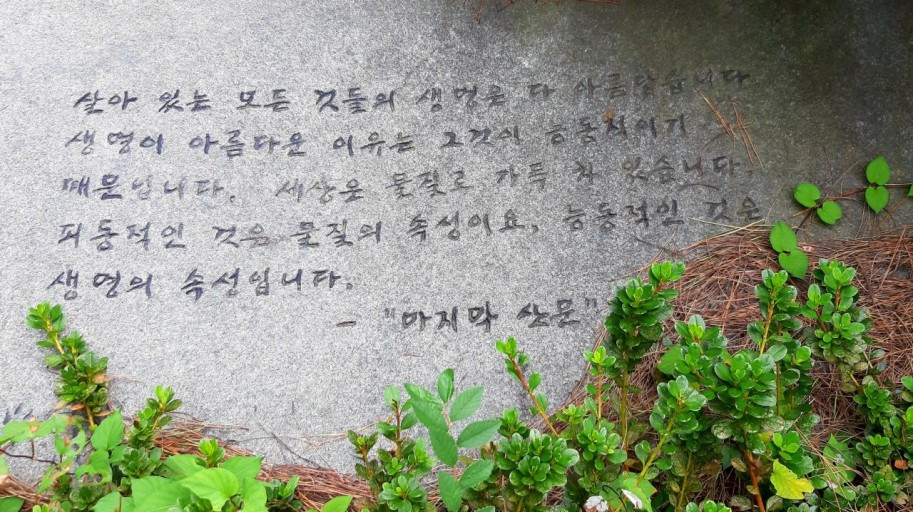 살아 있는 모든 것들의 생명은 다 아름답습니다
생명이 아름다운 이유는 그것이 능동적이기
때문입니다. 세상은 물질로 가득 차 있습니다.
피동적인 것은 물질의 속성이요, 능동적인 것은
생명의 속성입니다.
- "마지막 산문"